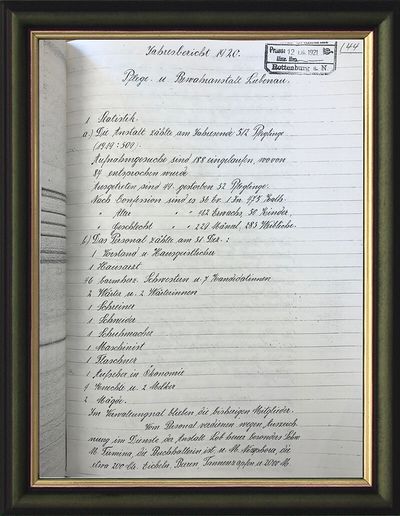 Jahresbericht 1920.
Pflege. u. Bewahranstalt Liebenau.
144
Präs: 12. 1921
Rottenburg a. N.
1 Statistik.
a.) Die Anstalt zählte am Jahresende 512 Pfleglinge
(1919: 509).
Aufnahmgesuche sind 188 eingelaufen, wovon
84 entsprochen wurde
Ausgetreten sind 44. gestorben 32 Pfleglinge.
Nach Confession sind es 36 ev. 1 Isr. 475 Kath.
" Alter " " 482 Erwachs. 30 Kinder,
" Geschlecht " " 229 Männl. 283 Weibliche.
b.) Das Personal zählte am 31 Dez.:
1 Vorstand u Hausgeistlicher
1 Hausarzt
46 barmherz. Schwestern u. 7 Kandidatinnen
2 Wärter u. 2 Wärterinnen
1 Schreiner
1 Schneider
1 Schuhmacher
1 Maschinist
1 Flaschner
1 Aufseher in Ökonomie
9 Knechte u. 2 Melker
2 Mägde.
Im Verwaltungsrat blieben die bisherigen Mitglieder.
Vom Personal verdienen wegen Auszeich
nung im Dienste der Anstalt Lob heuer besonders Schw
M. die Buchhalterin ist u. M. die
etwa 200 Ctr. Eicheln, Beeren, Tannenzapfen u. 2000 M.